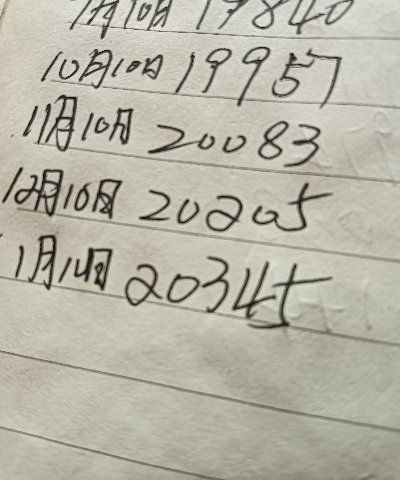 月10月 19840
10月10日 19957
11月10月 20083
12月10日 20205
1月10日 20345